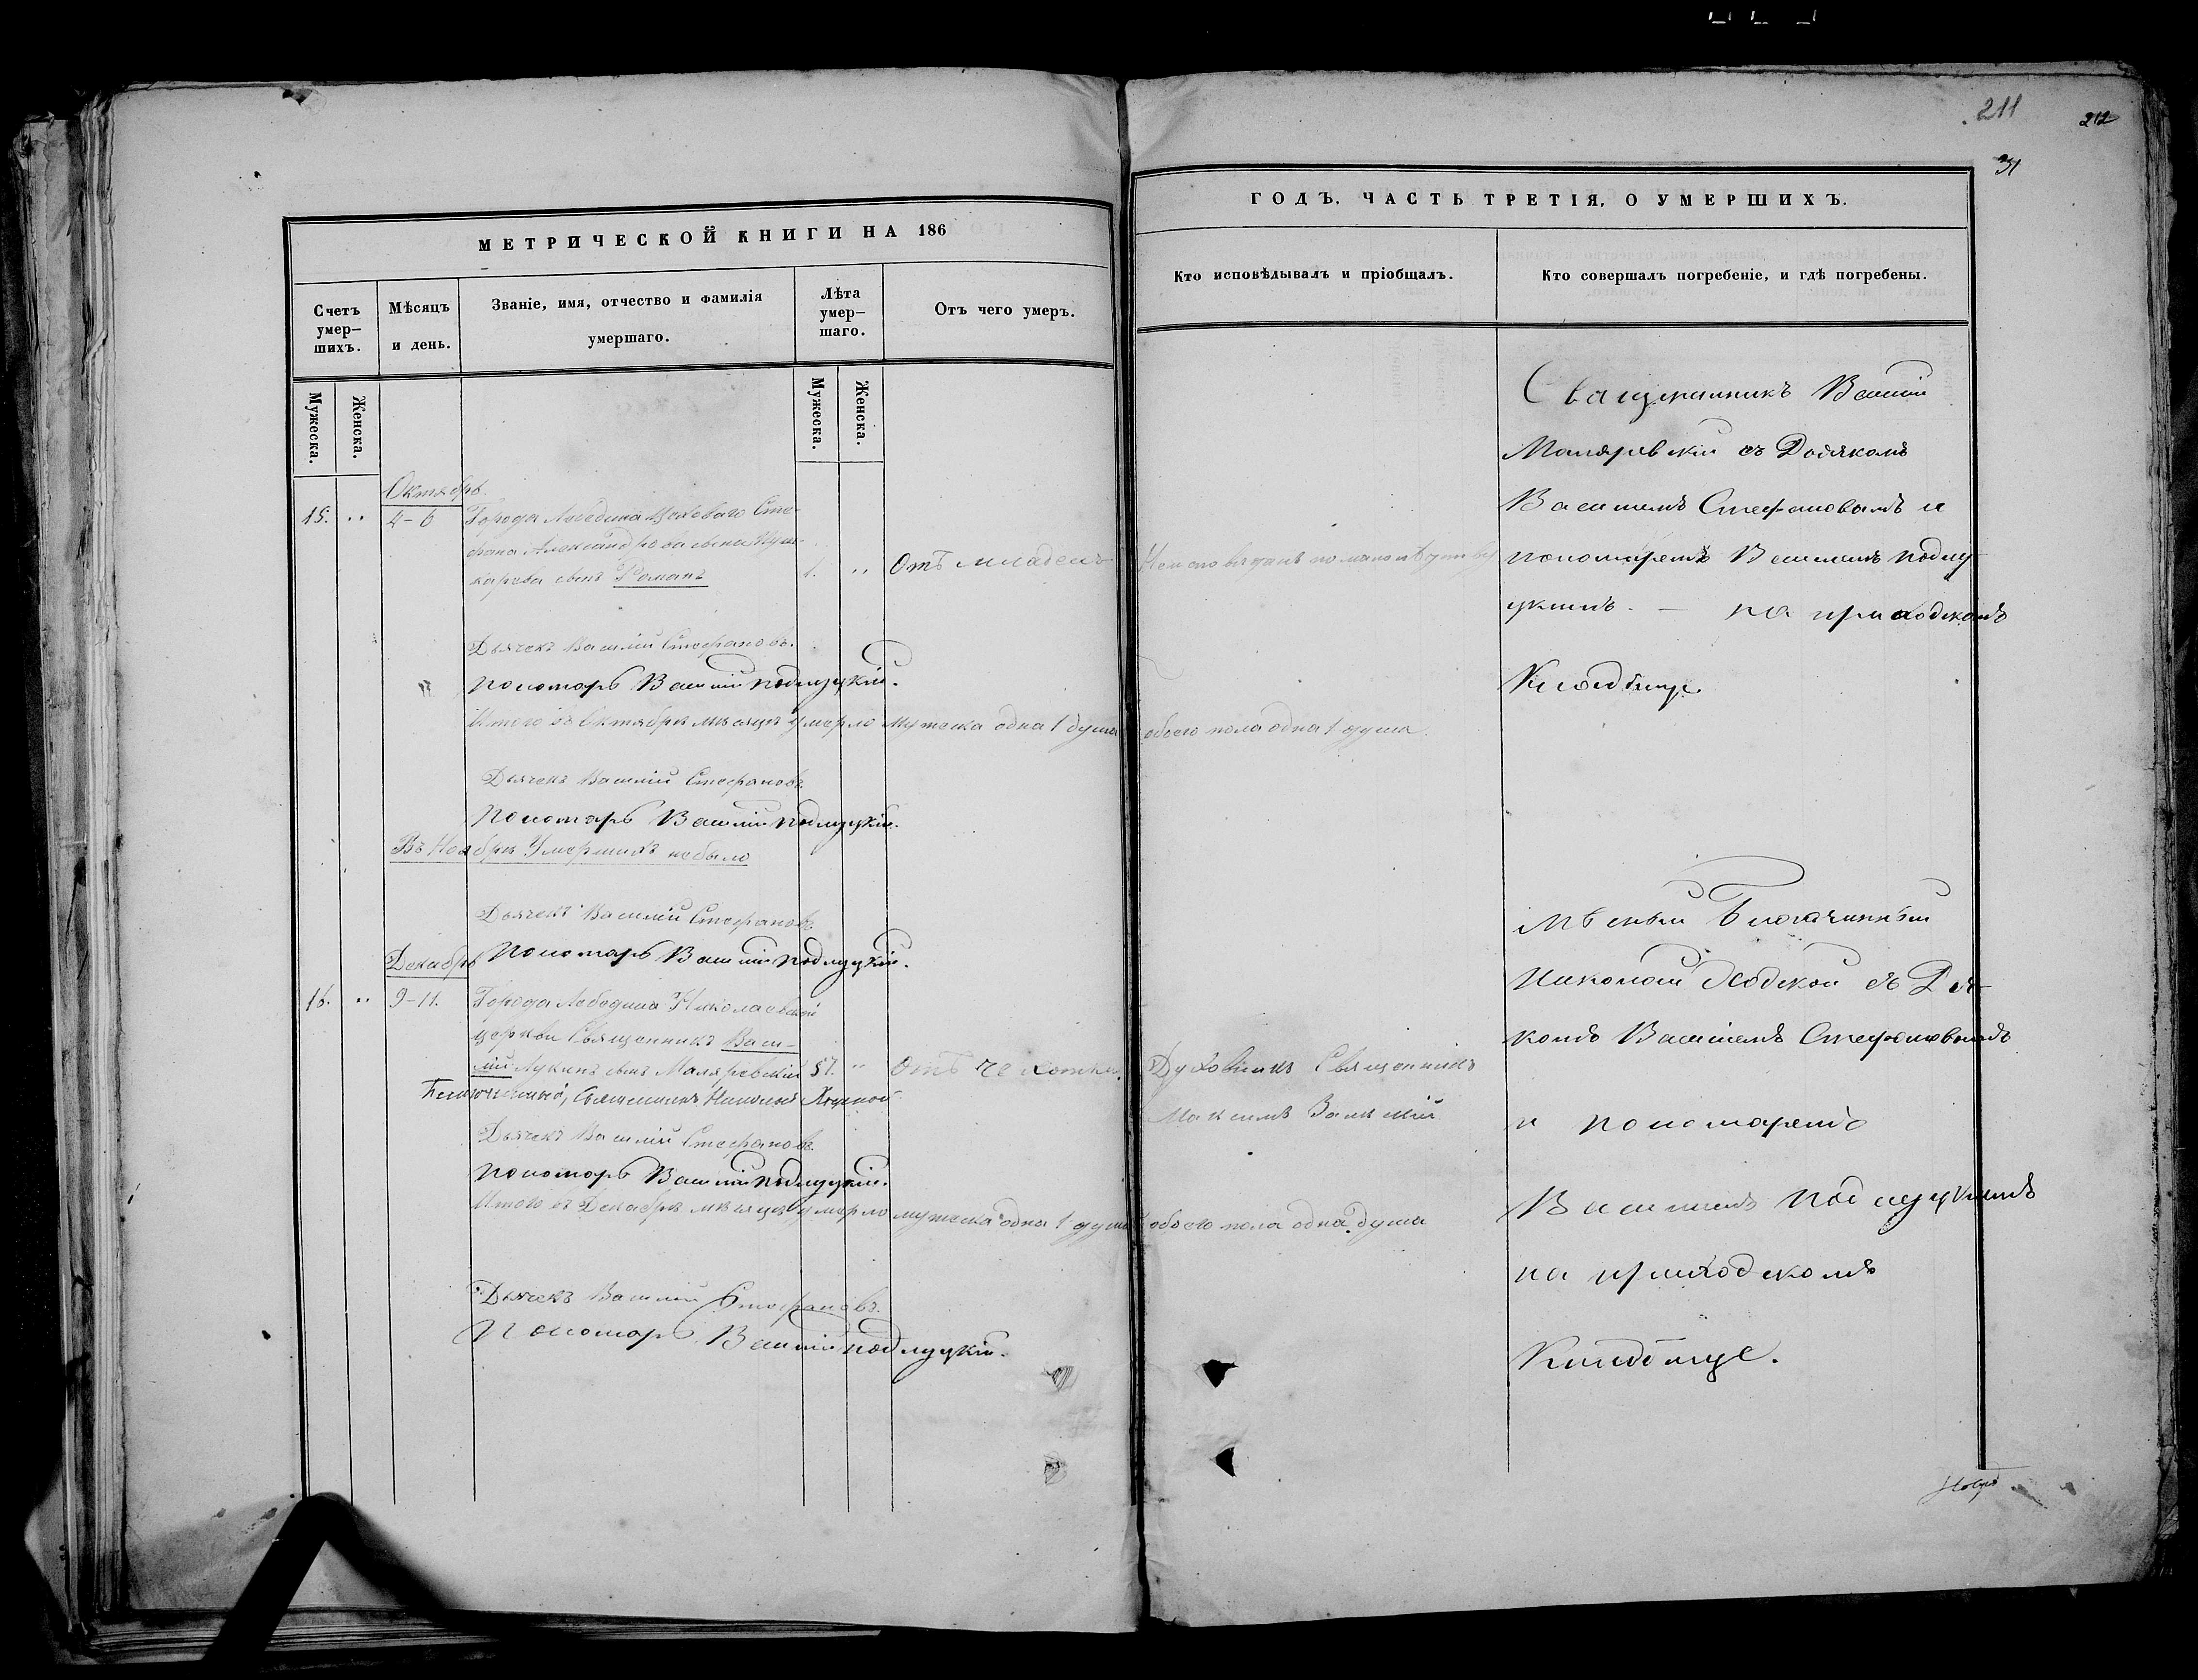 211
212
31
МЕТРИЧЕСКОЙ КНИГИ НА 186
Счетъ умер-шихъ.
Мѣсяцъ и день.
Званіе, имя, отчество и фамилія умершаго.
Лѣта умер-шаго.
Отъ чего умеръ.
Мужеска.
Женска.
Мужеска.
Женска.
Октябрь
15. " 4-6 Города Лебедина Цеховаго Сте-
фана Александрова сына
сынъ Романъ 1. " Отъ младен
Дьячекъ Василій Стефановъ.
Пономарь Василій Подлуцкій.
Итого въ Октябрѣ мѣсяцѣ умерло мужеска одна 1 душа
Дьячекъ Василій Стефановъ
Пономарь Василій Подлуцкій.
Въ Ноябрѣ Умершихъ небыло
Дьячекъ Василій Стефановъ
Пономарь Василій Подлуцкій.
Декабрь
16. " 9-11. Города Лебедина Николаевской
церкви Священникъ Васи-
лій Лукинъ сынъ Маляревскій 57. " Отъ чахотки.
Благочинный, Священникъ Николай
Дьячекъ Василій Стефановъ.
Пономарь Василій Подлуцкій.
Итого въ Декабрѣ мѣсяцѣ умерло мужеска одна 1 душа
Дьячекъ Василій Стефановъ.
Пономарь Василій Подлуцкій.
ГОДЪ. ЧАСТЬ ТРЕТІЯ, О УМЕРШИХЪ.
Кто исповѣдывалъ и пріобщалъ.
Кто совершалъ погребеніе, и гдѣ погребены.
обоего пола одна 1 душа.
Духовникъ Священникъ
Максимъ
обоего пола одна душа
Священникъ Василій
Маляревскій съ Дьякомъ
Василіемъ Стефановымъ и
пономаремъ Василіемъ Подлу
цкимъ. — на приходскомъ
Кладбище.
Мѣсный Благочинный
Николай съ Дья-
комъ Василіемъ Стефановымъ
и пономаремъ
Василіемъ Подлуцкимъ
на приходскомъ
Кладбище.